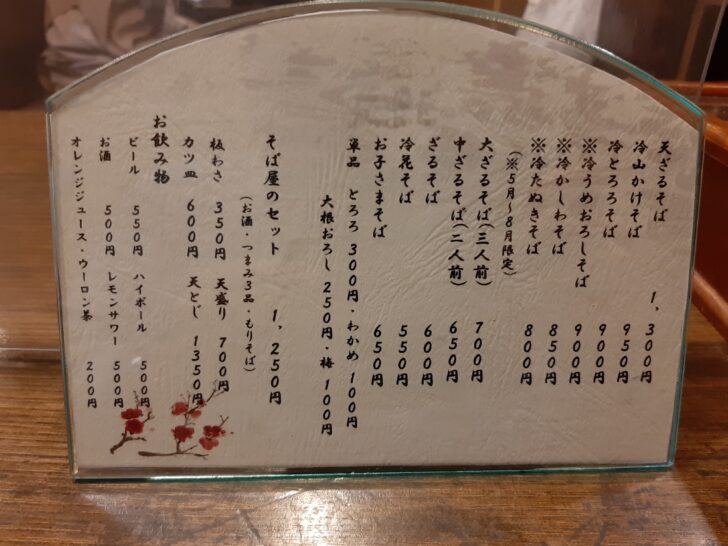 天ざるそば 1,300円
冷山かけそば 950円
冷とろろそば 900円
※冷うめおろしそば 900円
※冷かしわそば 850円
※冷たぬきそば 800円
(※5月～8月限定)
大ざるそば(三人前) 700円
中ざるそば(二人前) 650円
ざるそば 600円
冷花そば 550円
お子さまそば 650円
単品 とろろ 300円・わかめ 100円
大根おろし 250円・梅 100円
そば屋のセット 1,250円
(お酒・つまみ3品・もりそば)
板わさ 350円 天盛り 700円
カツ皿 600円 天とじ 1350円
お飲み物
ビール 550円 ハイボール 500円
お酒 500円 レモンサワー 500円
オレンジジュース・ウーロン茶 200円